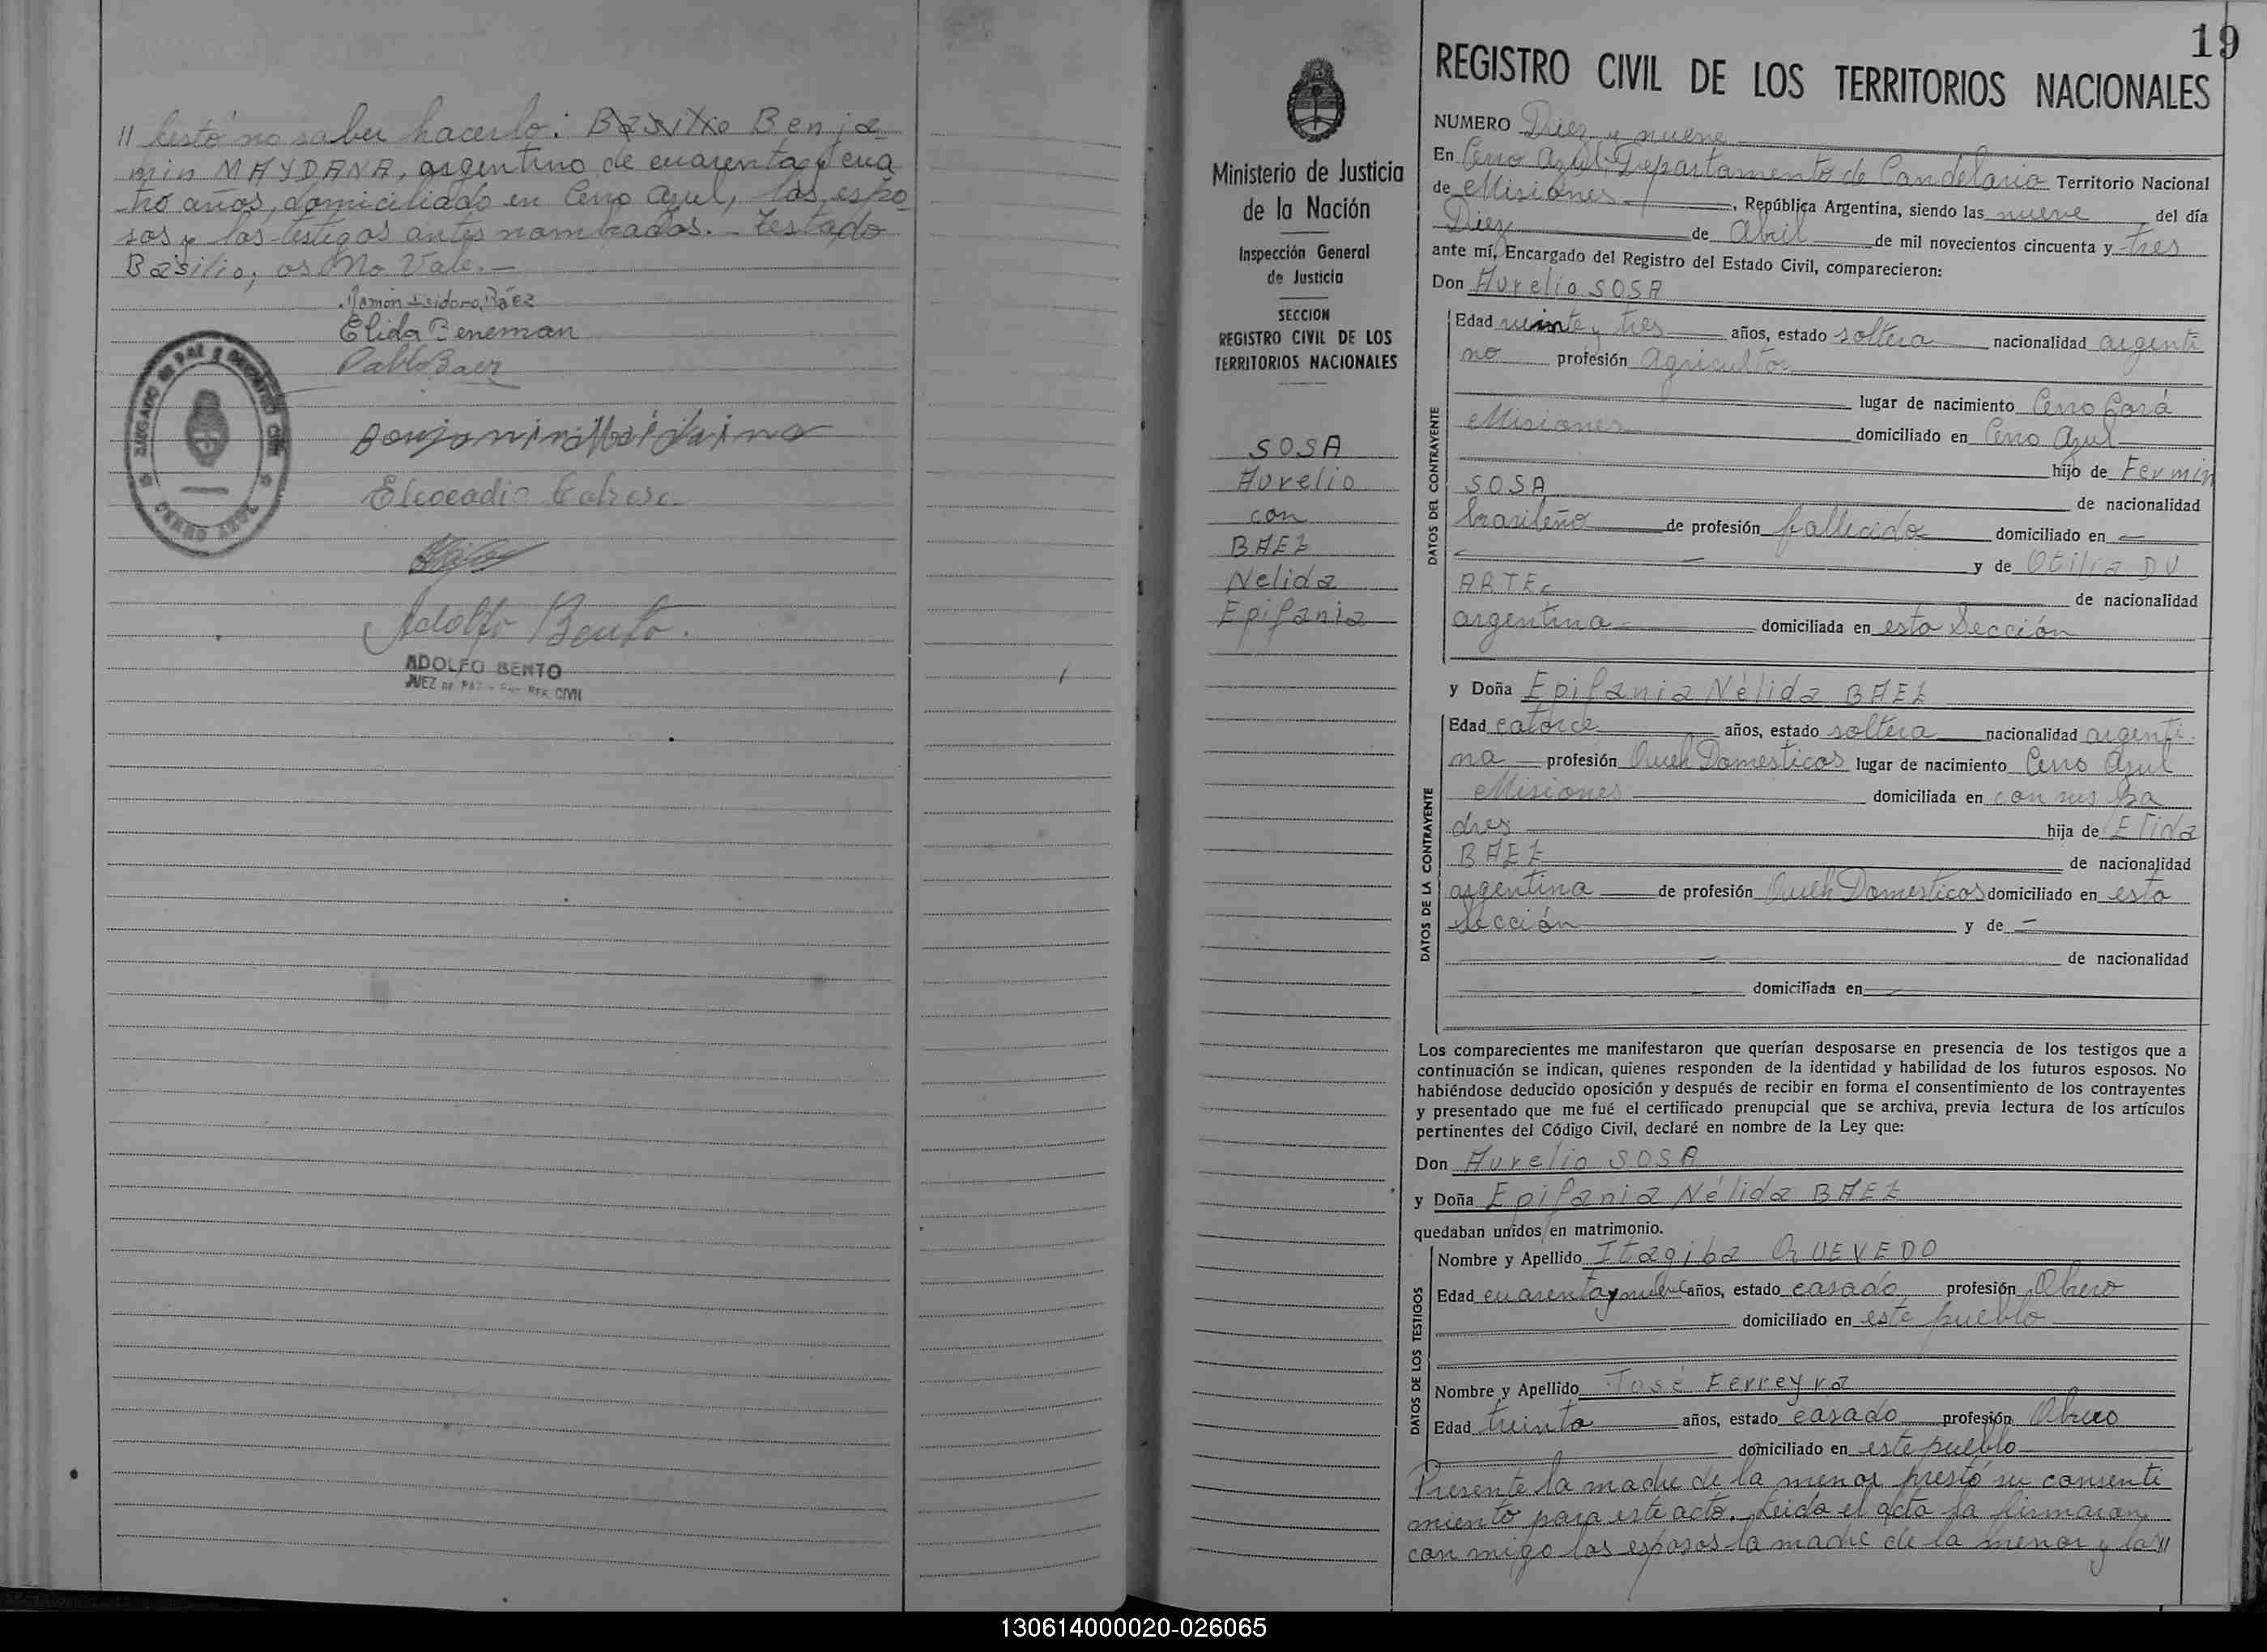 // festó no saber hacerlo: Basilio Benja
min MAYDANA, argentino de cuarenta y cua
tro años, domiciliado en Cerro Azul, los espo
sos y los testigos antes nombrados. - Testado
Basilio; os No Vale. -
Ramón Isidoro Báez
Elida Beneman
Pablo Baez
Eleocadio Cabrera
Adolfo Bento.
ADOLFO BENTO
JUEZ DE PAZ - ENC. REG. CIVIL
JUZGADO DE PAZ Y REGISTRO CIVIL
CERRO AZUL
19
REGISTRO CIVIL DE LOS TERRITORIOS NACIONALES
Ministerio de Justicia
de la Nación
Inspección General
de Justicia
SECCION
REGISTRO CIVIL DE LOS
TERRITORIOS NACIONALES
SOSA
Aurelio
con
BAEZ
Nelida
Epifania
NUMERO Diez y nueve
En Cerro Azul, Departamento de Candelaria Territorio Nacional
de Misiones, República Argentina, siendo las nueve del día
Diez de Abril de mil novecientos cincuenta y tres
ante mí, Encargado del Registro del Estado Civil, comparecieron:
Don Aurelio SOSA
DATOS DEL CONTRAYENTE
Edad veinte y tres años, estado soltero nacionalidad argenti
no profesión Agricultor
lugar de nacimiento Cerro Corá
Misiones domiciliado en Cerro Azul
hijo de Fermin
SOSA de nacionalidad
brasileño de profesión fallecido domiciliado en -
- y de Otilia DU
ARTE de nacionalidad
argentina domiciliada en esta Sección
y Doña Epifania Nélida BAEZ
DATOS DE LA CONTRAYENTE
Edad catorce años, estado soltera nacionalidad argenti
na profesión Queh. Domesticos lugar de nacimiento Cerro Azul
Misiones domiciliada en con sus pa
dres hija de Elida
BAEZ de nacionalidad
argentina de profesión Queh. Domesticos domiciliado en esta
Sección y de -
- de nacionalidad
- domiciliada en -
Los comparecientes me manifestaron que querían desposarse en presencia de los testigos que a
continuación se indican, quienes responden de la identidad y habilidad de los futuros esposos. No
habiéndose deducido oposición y después de recibir en forma el consentimiento de los contrayentes
y presentado que me fué el certificado prenupcial que se archiva, previa lectura de los artículos
pertinentes del Código Civil, declaré en nombre de la Ley que:
Don Aurelio SOSA
y Doña Epifania Nélida BAEZ
quedaban unidos en matrimonio.
DATOS DE LOS TESTIGOS
Nombre y Apellido Itagiba QUEVEDO
Edad cuarenta y nueve años, estado casado profesión Obrero
domiciliado en este pueblo
Nombre y Apellido José Ferreyra
Edad treinta años, estado casado profesión Obrero
domiciliado en este pueblo
Presente la madre de la menor prestó su consenti
miento para este acto. Leida el acta la firmaron
con migo los esposos la madre de la menor y los//
130614000020-026065